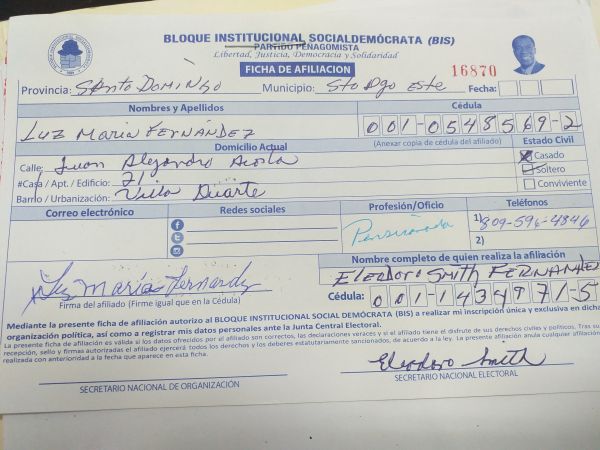 BLOQUE INSTITUCIONAL SOCIALDEMÓCRATA (BIS)
PARTIDO PEÑAGOMISTA
Libertad, Justicia, Democracia y Solidaridad
FICHA DE AFILIACION
16870
Provincia: Santo Domingo Municipio: Sto Dgo Este Fecha:
Nombres y Apellidos Cédula
Luz Maria Fernández 001-0548569-2
Domicilio Actual (Anexar copia de cédula del afiliado) Estado Civil
Calle: Juan Alejandro Acosta Casado
#Casa / Apt. / Edificio: 21 Soltero
Barrio / Urbanización: Villa Duarte Conviviente
Correo electrónico Redes sociales Profesión/Oficio Teléfonos
Pensionada 1) 809-596-4846
2)
Nombre completo de quien realiza la afiliación
Luz María Fernandez Eleodoro Smith Fernandez
Firma del afiliado (Firme igual que en la Cédula) Cédula: 001-1434971-5
Mediante la presente ficha de afiliación autorizo al BLOQUE INSTITUCIONAL SOCIAL DEMÓCRATA (BIS) a realizar mi inscripción única y exclusiva en dicha
organización política, así como a registrar mis datos personales ante la Junta Central Electoral.
La presente ficha de afiliación es válida si los datos ofrecidos por el afiliado son correctos, las declaraciones veraces y si el afiliado tiene el disfrute de sus derechos civiles y políticos. Tras su
recepción, sello y firmas autorizadas el afiliado ejercerá todos los derechos y los deberes estatutariamente sancionados, de acuerdo a la ley. La presente afiliación anula cualquier afiliación
realizada con anterioridad a la fecha que aparece en esta ficha.
Eleodoro Smith
SECRETARIO NACIONAL DE ORGANIZACIÓN SECRETARIO NACIONAL ELECTORAL